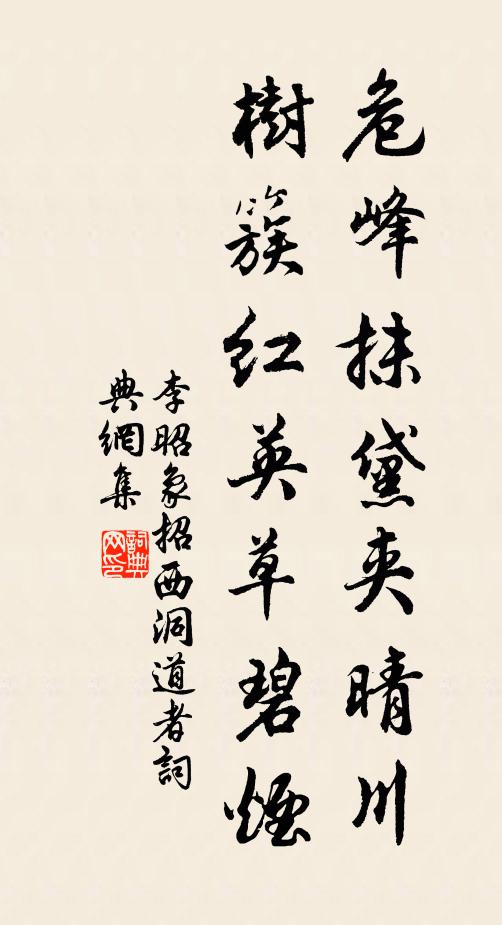 危峰抹黛夾晴川
樹簇紅英草碧煙
李昭象招西洞道者詞
典網集
詞典
网印